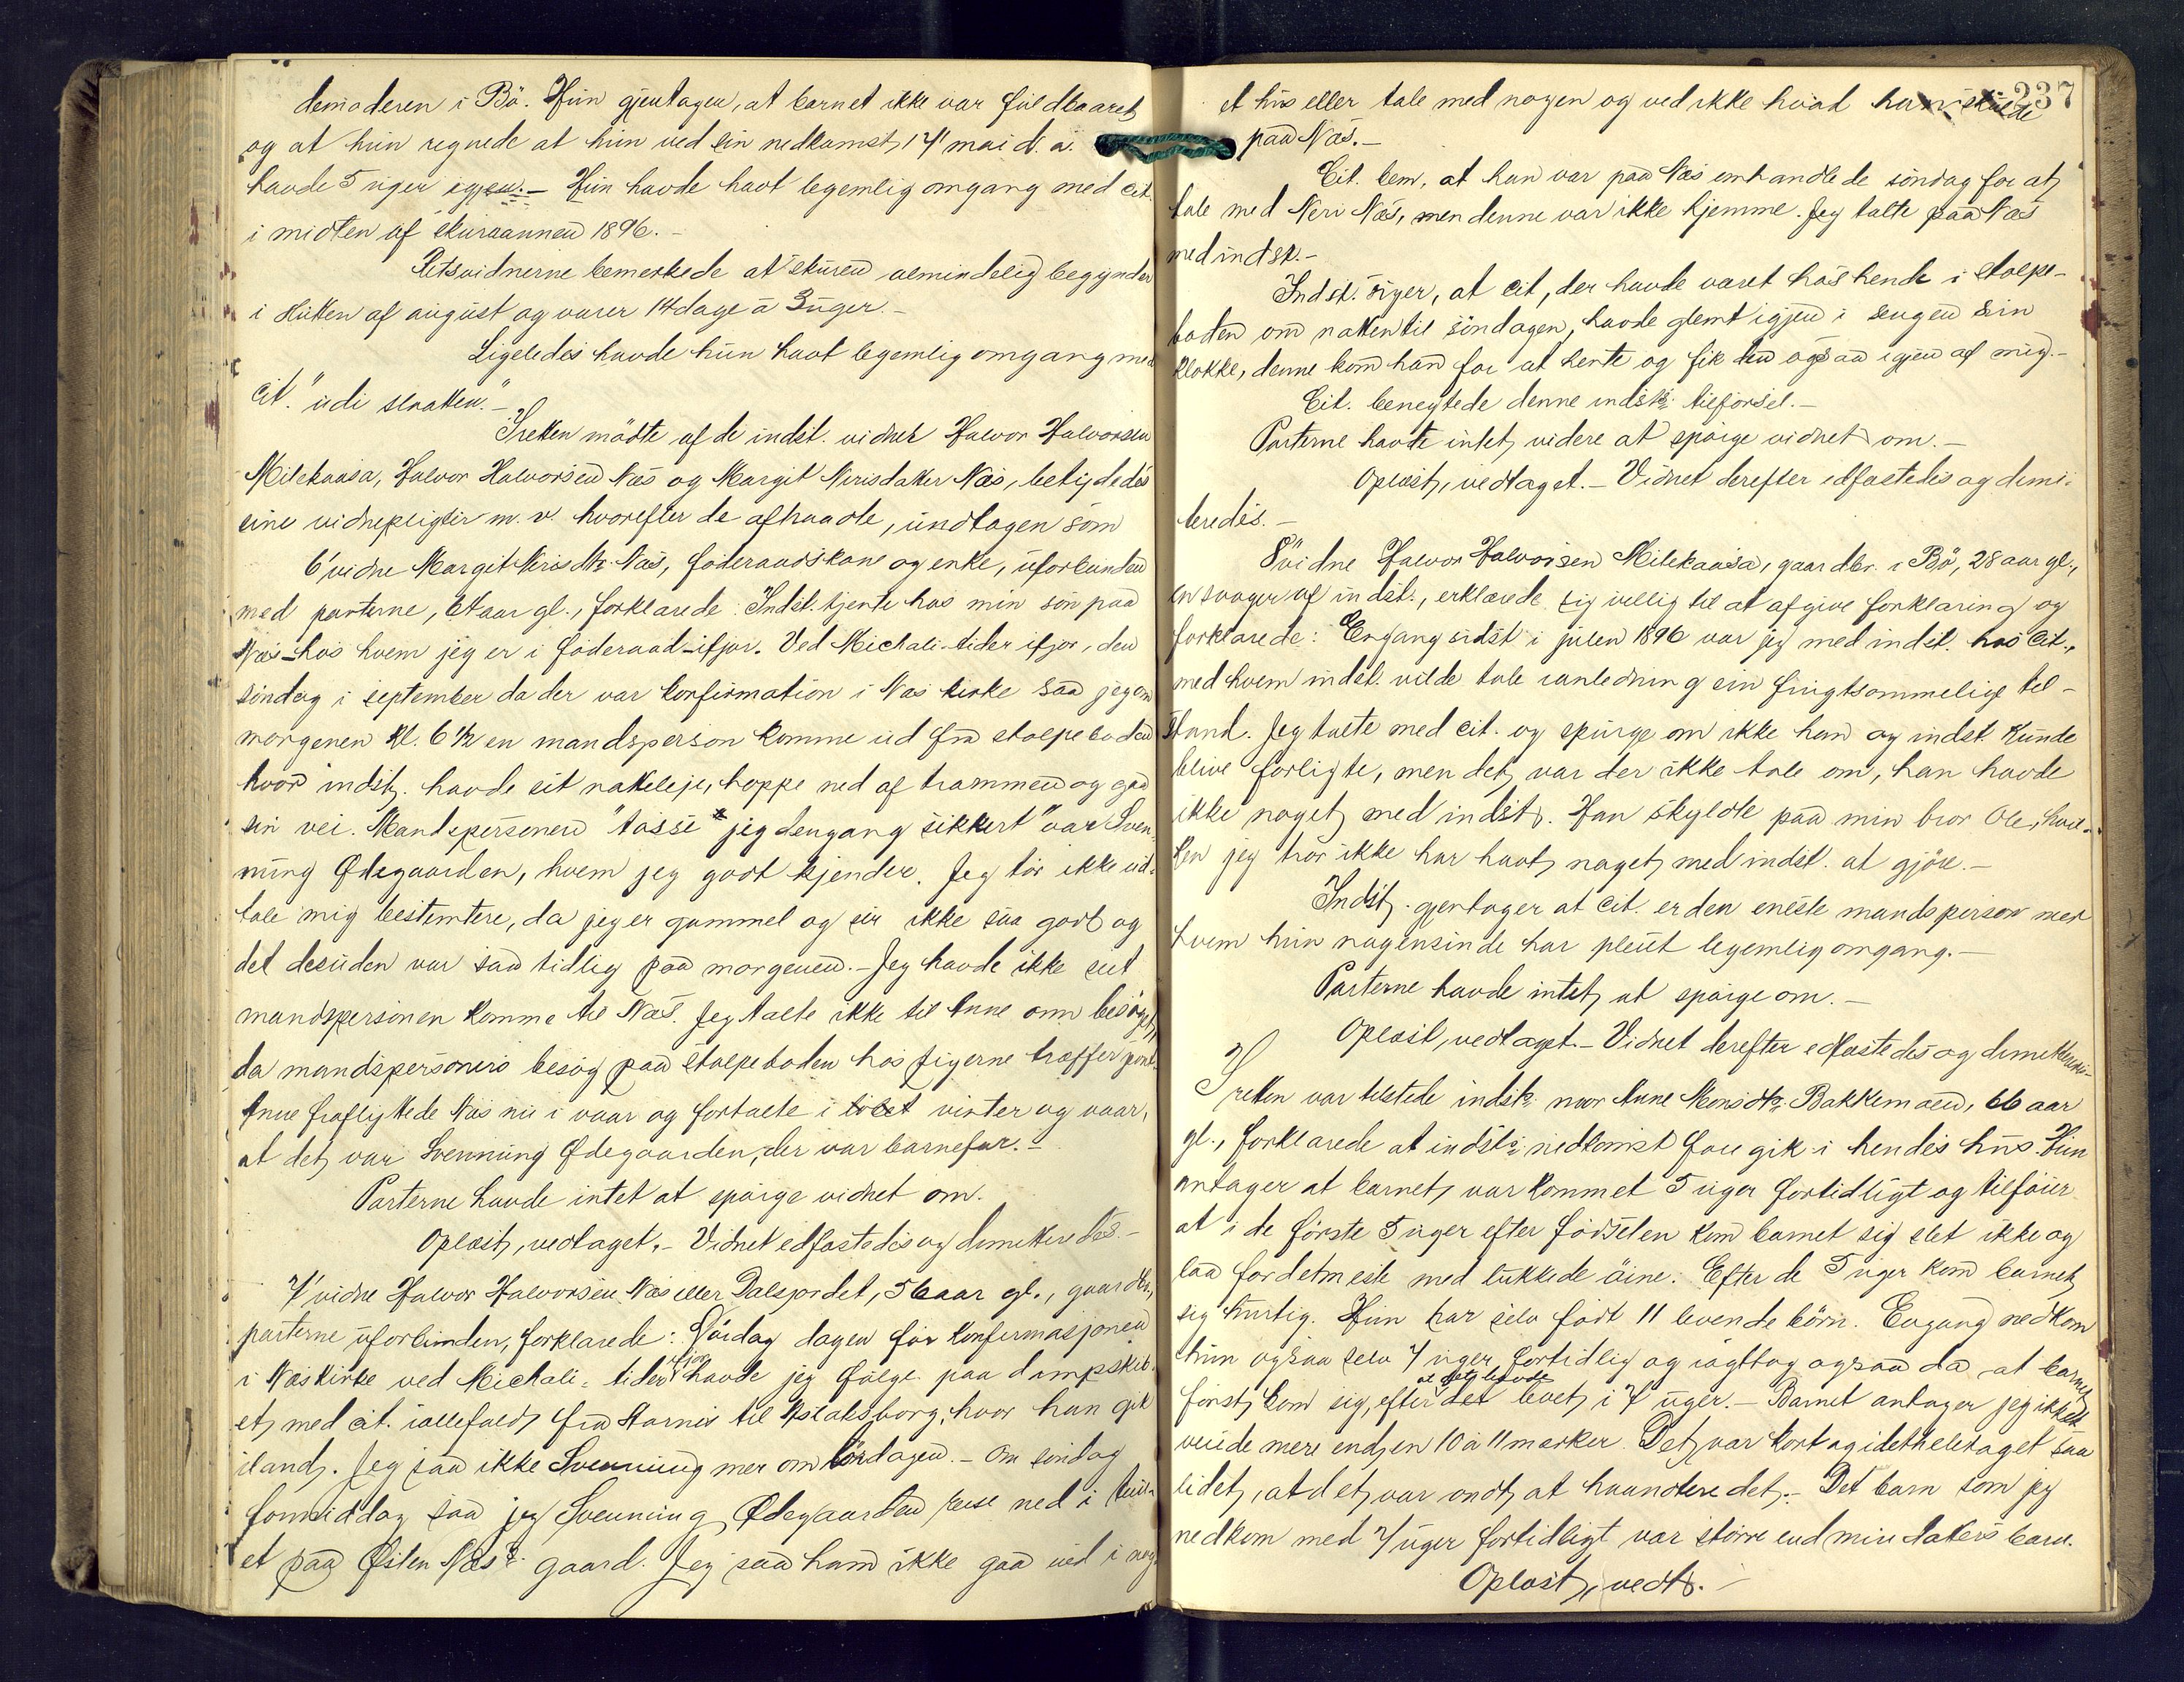 demoderen i Bö. Hun gjentager, at barnet ikke var fuldbaaret
og at hun regnede at hun ved sin nedkomst 14' mai d. a.
havde 5 uger igjen. – Hun havde havt legemlig omgang med cit.
i midten af skuraannen 1896. –
Retsvidnerne bemerkede at skuren almindelig begynder
i slutten af august og varer 14 dage à 3 uger. –
Ligeledes havde hun havt legemlig omgang med
cit. "udi slaatten". –
I retten mödte af de indst. vidner Halvor Halvorsen
Milekaasa, Halvor Halvorsen Næs og Margit Nerisdatter Næs, betydedes
sine vidnepligter m. v. hvorefter de aftraadte, undtagen som
6' vidne Margit Nerisdtr. Næs, föderaadskone og enke, uforbunden
med parterne, aar gl., forklarede: Indst. tjente hos min sön paa
Næs – hos hvem jeg er i föderaad – ifjor. Ved Michali-tider ifjor, den
söndag i september da der var konfirmation i Næs kirke saa jeg om
morgenen kl. 6 ½ en mandsperson komme ud fra stolpeboden
hvor indst. havde sit natteleje, hoppe ned af trammen og gaa
sin vei. Mandspersonen "tossi jeg dengang sikkert" var Sven-
nung Ødegaarden, hvem jeg godt kjender. Jeg tör ikke ud-
tale mig bestemtere, da jeg er gammel og ser ikke saa godt og
det desuden var saa tidlig paa morgenen. – Jeg havde ikke seet
mandspersonen komme til Næs. Jeg talte ikke til Anne om besöget,
da mandspersoners besög paa stolpeboden hos pigerne træffer
Anne fraflyttede Næs nu i vaar og fortalte i löbet vinter og vaar,
at det var Svennung Ødegaarden, der var barnefar. –
Parterne havde intet at spörge vidnet om.
Oplæst, vedtaget. – Vidnet edfæstedes og dimitteredes. –
7' vidne Halvor Halvorsen Næs eller Dalsjordet, 56 aar gl., gaardbr.,
parterne uforbunden, forklarede: Lördag dagen för konfirmasjonen
i Næs kirke ved Michali-tider ifjor havde jeg fölge paa dampskib-
et med cit. iallefald fra Aarnes til Aslaksborg, hvor han gik
iland. Jeg saa ikke Svennung mer om lördagen. – Om söndag
formiddag saa jeg Svennung Ødegaarden reise ned i tun-
et paa Østen Næs's gaard. Jeg saa ham ikke gaa ind i nog-
237
et hus eller tale med nogen og ved ikke hvad han skulde
paa Næs. –
Cit. bem. at han var paa Næs omhandlede söndag for at
tale med Neri Næs, men denne var ikke hjemme. Jeg talte paa Næs
med indst. –
Indst. siger, at cit., der havde været hos hende i stolpe-
boden om natten til söndagen, havde glemt igjen i sengen sin
klokke, denne kom han for at hente og fik den ogsaa igjen af mig. –
Cit. benegtede denne indsts. tilförsel. –
Parterne havde intet videre at spörge vidnet om. –
Oplæst, vedtaget. – Vidnet derefter edfæstedes og dimit-
teredes. –
8' vidne Halvor Halvorsen Milekaasa, gaardbr. i Bö, 28 aar gl.,
en svoger af indst., erklærede sig villig til at afgive forklaring og
forklarede: Engang sidst i julen 1896 var jeg med indst. hos cit.,
med hvem indst. vilde tale ianledning sin frugtsommelige til-
stand. Jeg talte med cit. og spurgte om ikke han og indst. kunde
blive forligte, men det var der ikke tale om, han havde
ikke noget med indst. Han skyldte paa min bror Ole, hvil-
ken jeg tror ikke har havt noget med indst. at gjöre. –
Indst. gjentager at cit. er den eneste mandsperson med
hvem hun nogensinde har pleiet legemlig omgang. –
Parterne havde intet at spörge om. –
Oplæst, vedtaget. – Vidnet derefter edfæstedes og dimitteredes –
I retten var tilstede indsts. mor Anne Monsdtr. Bakkemoen, 66 aar
gl., forklarede at indsts. nedkomst foregik i hendes hus. Hun
antager at barnet var kommet 5 uger fortidligt og tilföier
at i de förste 5 uger efter födselen kom barnet sig slet ikke og
laa fordetmeste med lukkede öine. Efter de 5 uger kom barnet
sig hurtig. Hun har selv födt 11 levende börn. Engang nedkom
hun ogsaa selv 7 uger fortidlig og iagttog ogsaa da at barnet
först kom sig, efter at det havde levet i 7 uger. – Barnet antager jeg ikke
veiede mere end en 10 à 11 marker. Det var kort og idetheletaget saa
lidet, at det var ondt at haandtere det. – Det barn som jeg
nedkom med 7 uger fortidligt var större end min datters barn.
Oplæst, vedt. –